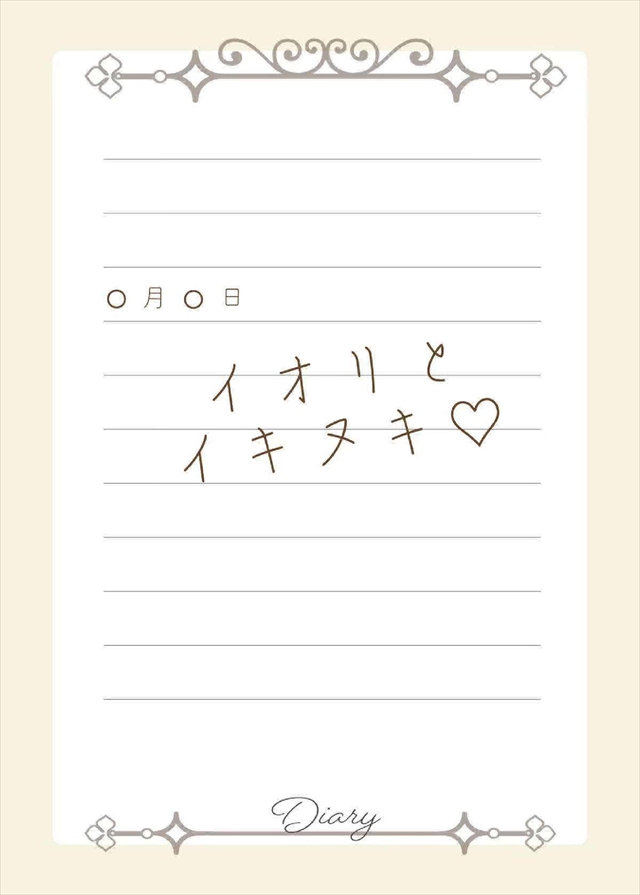 ○月○日
イオリと
イキヌキ♡
Diary